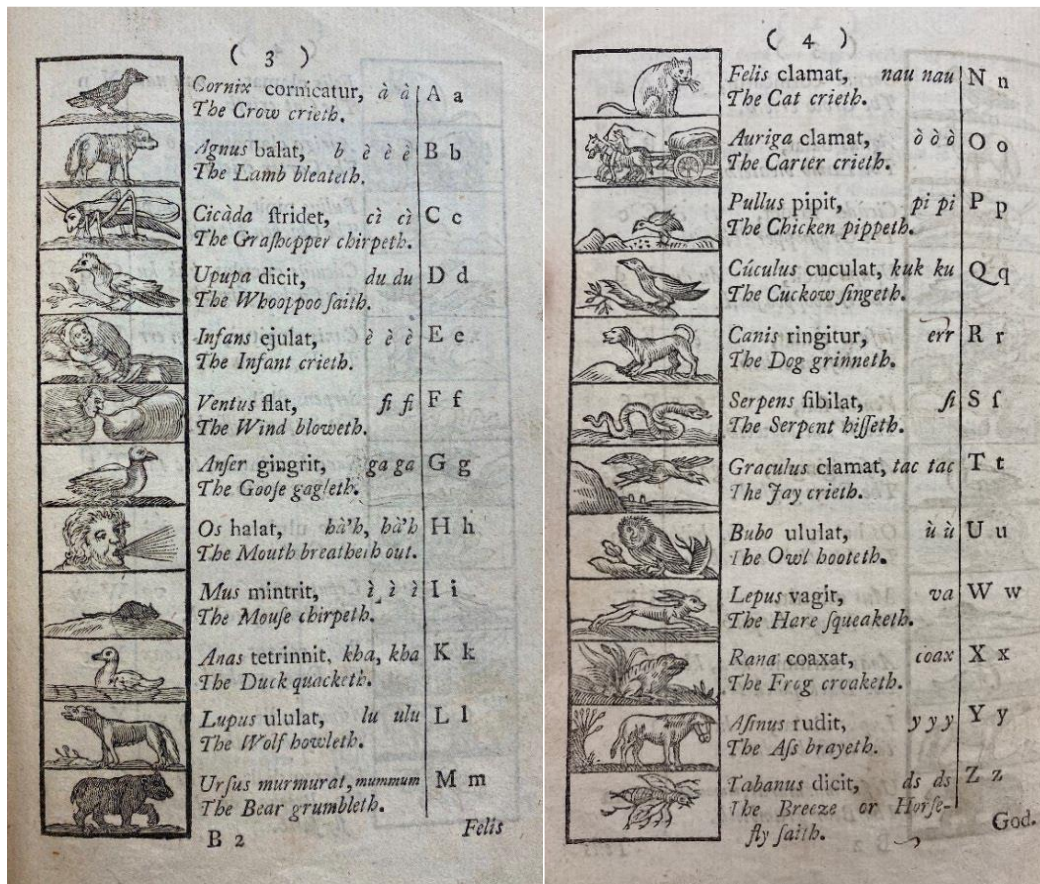 ( 3 )
Cornix cornicatur, à à A a
The Crow crieth.
Agnus balat, b è è è B b
The Lamb bleateth.
Cicàda ſtridet, cì cì C c
The Graſhopper chirpeth.
Upupa dicit, du du D d
The Whooppoo ſaith.
Infans ejulat, è è è E e
The Infant crieth.
Ventus flat, fi fi F f
The Wind bloweth.
Anſer gingrit, ga ga G g
The Gooſe gagleth.
Os halat, hà'h, hà'h H h
The Mouth breatheth out.
Mus mintrit, ì ì ì I i
The Mouſe chirpeth.
Anas tetrinnit, kha, kha K k
The Duck quacketh.
Lupus ululat, lu ulu L l
The Wolf howleth.
Urſus murmurat, mummum M m
The Bear grumbleth.
B 2 Felis
( 4 )
Felis clamat, nau nau N n
The Cat crieth.
Auriga clamat, ò ò ò O o
The Carter crieth.
Pullus pipit, pi pi P p
The Chicken pippeth.
Cúculus cuculat, kuk ku Q q
The Cuckow ſingeth.
Canis ringitur, err R r
The Dog grinneth.
Serpens ſibilat, ſi S ſ
The Serpent hiſſeth.
Graculus clamat, tac tac T t
The Jay crieth.
Bubo ululat, ù ù U u
The Owl hooteth.
Lepus vagit, va W w
The Hare ſqueaketh.
Rana coaxat, coax X x
The Frog croaketh.
Aſinus rudit, y y y Y y
The Aſs brayeth.
Tabanus dicit, ds ds Z z
The Breeze or Horſe-
fly ſaith.
God.